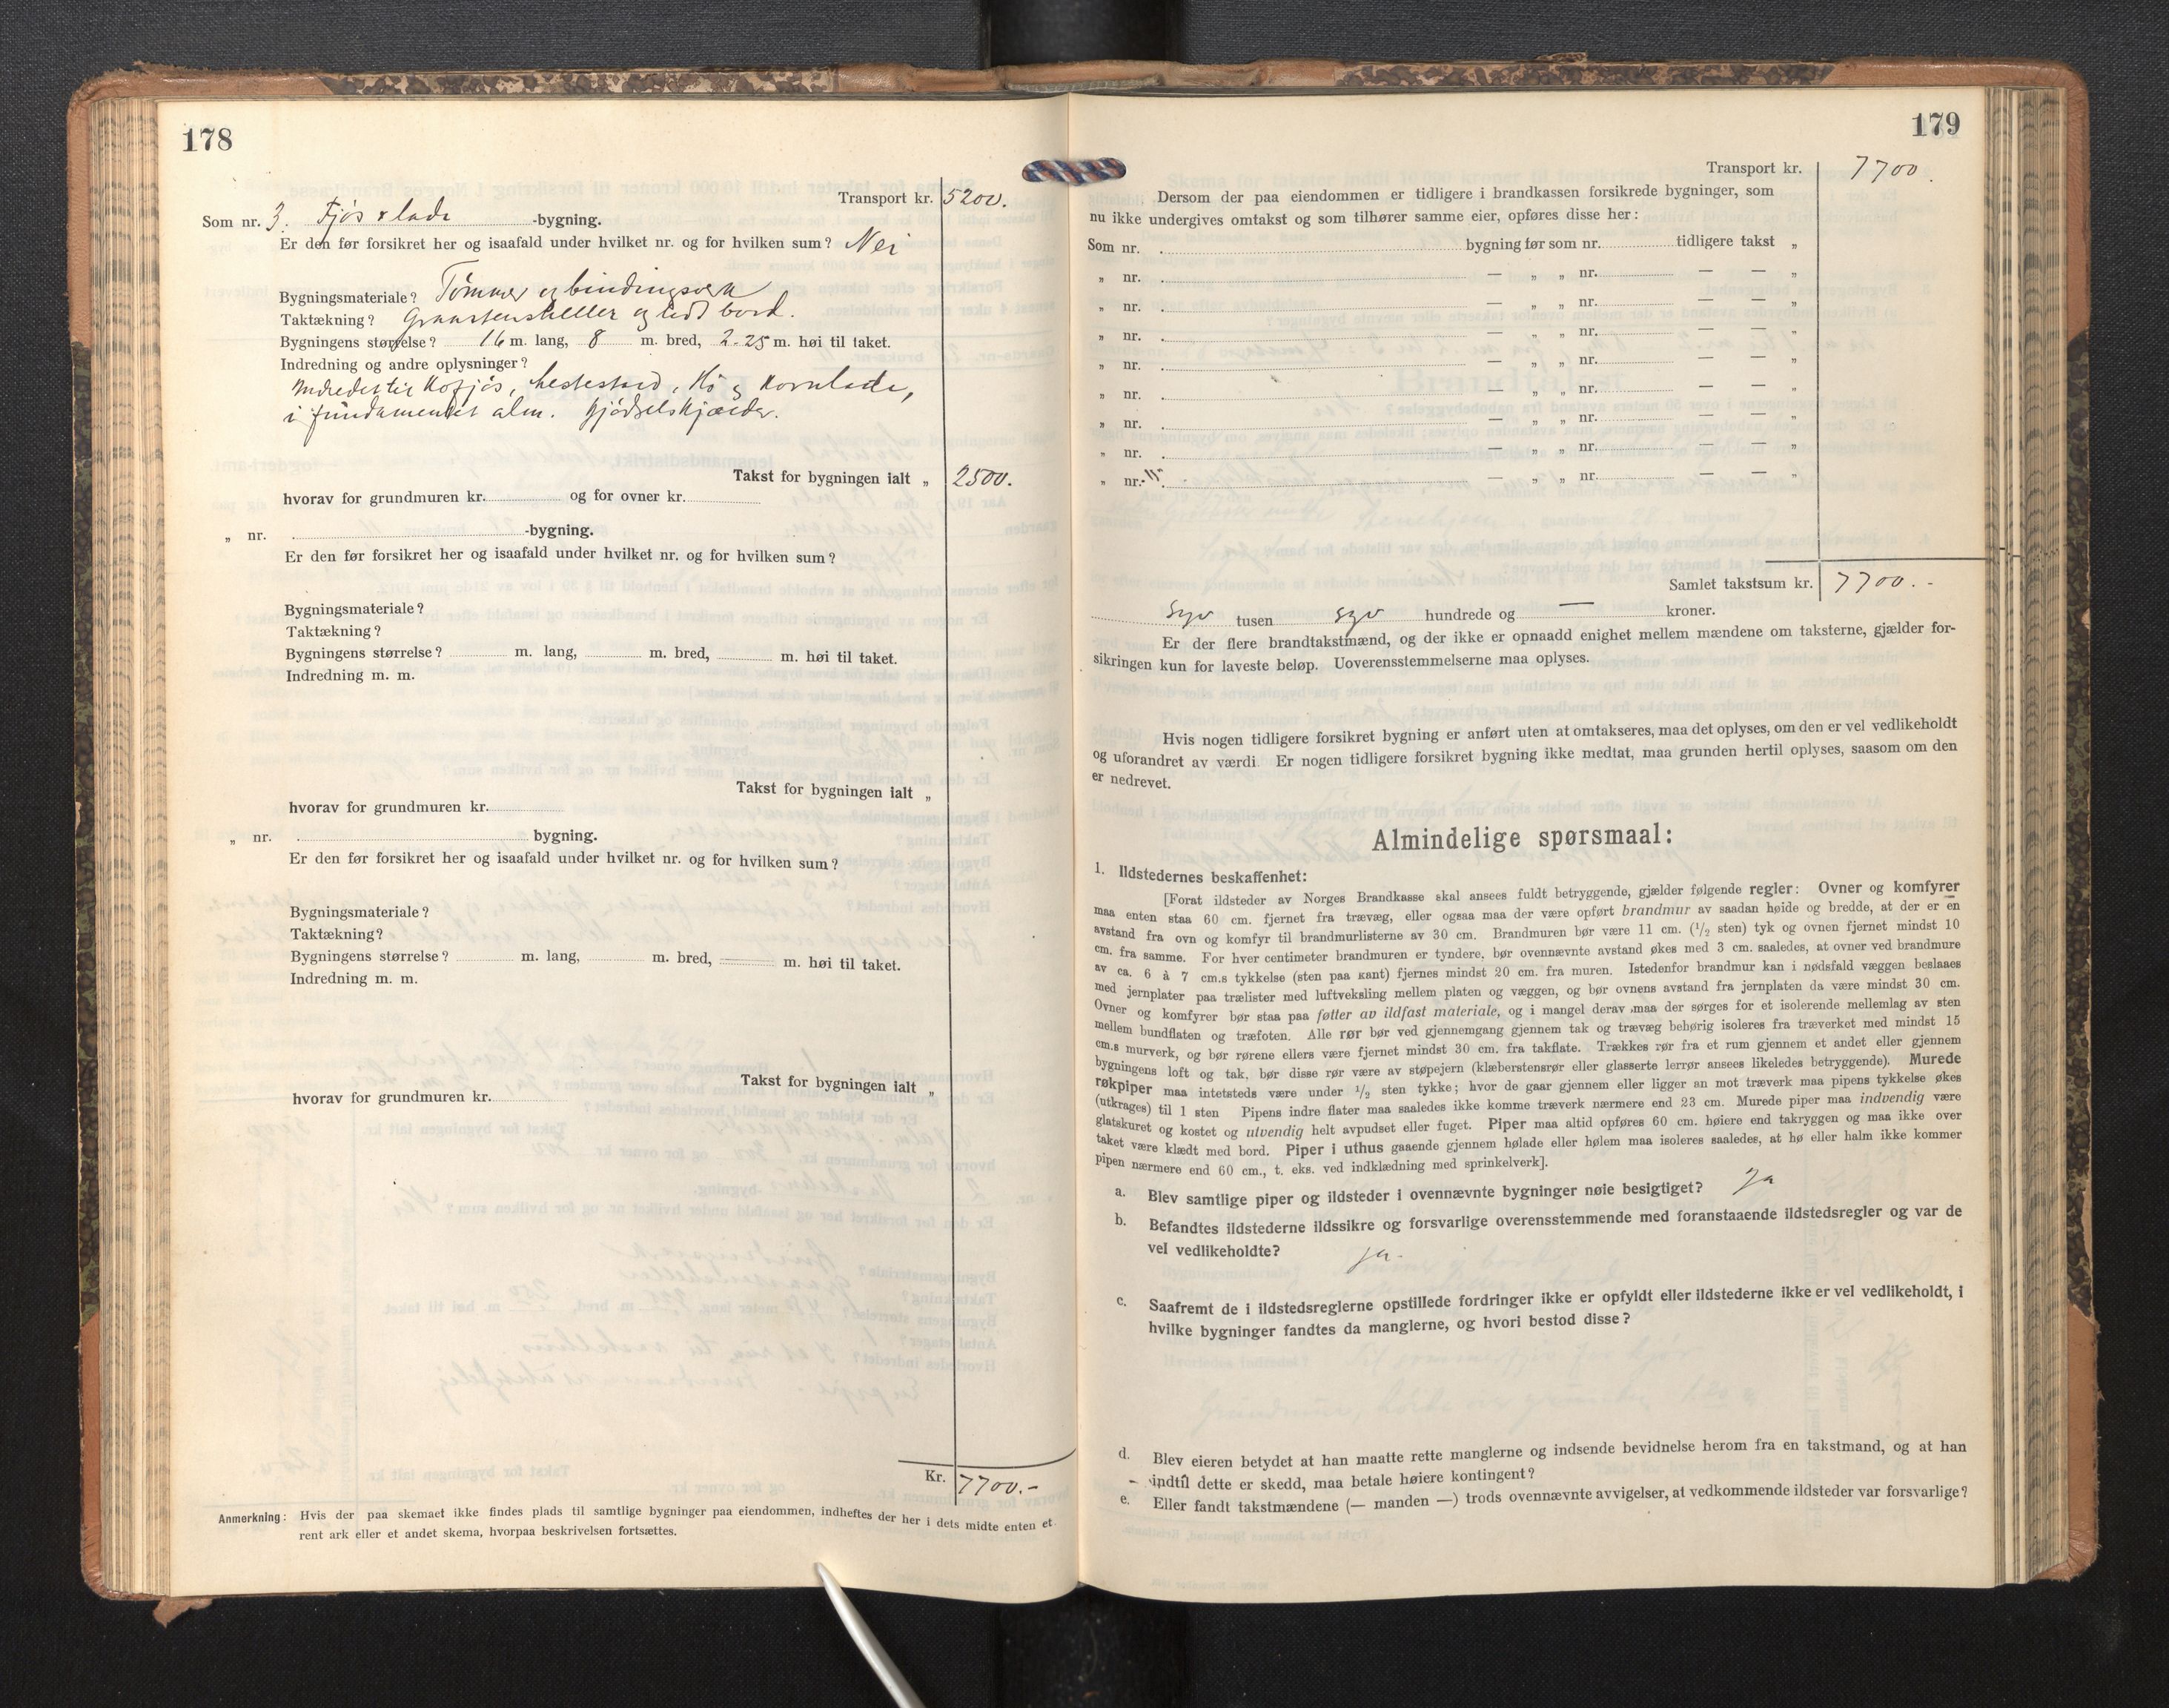 178
Transport kr. 5200.
Som nr. 3. Fjøs & lade -bygning.
Er den før forsikret her og isaafald under hvilket nr. og for hvilken sum? Nei
Bygningsmateriale? Tømmer og bindingsverk
Taktækning? Graastensheller og bord.
Bygningens størrelse? 16 m. lang, 8 m. bred, 2-25 m. høi til taket.
Indredning og andre oplysninger?
Indredet til Kofjøs, hestestald, Hø og Kornlade,
i fundamentet alm. gjødselskjælder.
Takst for bygningen ialt „ 2500.
hvorav for grundmuren kr. og for ovner kr.
„ nr. -bygning.
Er den før forsikret her og isaafald under hvilket nr. og for hvilken sum?
Bygningsmateriale?
Taktækning?
Bygningens størrelse? m. lang, m. bred, m. høi til taket.
Indredning m. m.
Takst for bygningen ialt „
hvorav for grundmuren kr.
„ nr. bygning.
Er den før forsikret her og isaafald under hvilket nr. og for hvilken sum?
Bygningsmateriale?
Taktækning?
Bygningens størrelse? m. lang, m. bred, m. høi til taket.
Indredning m. m.
Takst for bygningen ialt „
hvorav for grundmuren kr.
Kr. 7700.-
Anmerkning: Hvis der paa skemaet ikke findes plads til samtlige bygninger paa eiendommen, indheftes der her i dets midte enten et
rent ark eller et andet skema, hvorpaa beskrivelsen fortsættes.
179
Transport kr. 7700.
Dersom der paa eiendommen er tidligere i brandkassen forsikrede bygninger, som
nu ikke undergives omtakst og som tilhører samme eier, opføres disse her:
Som nr. bygning før som nr. tidligere takst „
„ nr. — „ „ nr. — — „
„ nr. — „ „ nr. — — „
„ nr. — „ „ nr. — — „
„ nr. — „ „ nr. — — „
„ nr. — „ „ nr. — — „
„ nr. — „ „ nr. — — „
„ nr. — „ „ nr. — — „
„ nr. — „ „ nr. — — „
Samlet takstsum kr. 7700.-
syv tusen syv hundrede og — kroner.
Er der flere brandtakstmænd, og der ikke er opnaadd enighet mellem mændene om taksterne, gjælder for-
sikringen kun for laveste beløp. Uoverensstemmelserne maa oplyses.
Hvis nogen tidligere forsikret bygning er anført uten at omtakseres, maa det oplyses, om den er vel vedlikeholdt
og uforandret av værdi. Er nogen tidligere forsikret bygning ikke medtat, maa grunden hertil oplyses, saasom om den
er nedrevet.
Almindelige spørsmaal:
1. Ildstedernes beskaffenhet:
[Forat ildsteder av Norges Brandkasse skal ansees fuldt betryggende, gjælder følgende regler: Ovner og komfyrer
maa enten staa 60 cm. fjernet fra trævæg, eller ogsaa maa der være opført brandmur av saadan høide og bredde, at der er en
avstand fra ovn og komfyr til brandmurlisterne av 30 cm. Brandmuren bør være 11 cm. (1/2 sten) tyk og ovnen fjernet mindst 10
cm. fra samme. For hver centimeter brandmuren er tyndere, bør ovennævnte avstand økes med 3 cm. saaledes, at ovner ved brandmure
av ca. 6 à 7 cm.s tykkelse (sten paa kant) fjernes mindst 20 cm. fra muren. Istedenfor brandmur kan i nødsfald væggen beslaaes
med jernplater paa trælister med luftveksling mellem platen og væggen, og bør ovnens avstand fra jernplaten da være mindst 30 cm.
Ovner og komfyrer bør staa paa føtter av ildfast materiale, og i mangel derav maa der sørges for et isolerende mellemlag av sten
mellem bundflaten og træfoten. Alle rør bør ved gjennemgang gjennem tak og trævæg behørig isoleres fra træverket med mindst 15
cm.s murverk, og bør rørene ellers være fjernet mindst 30 cm. fra takflate. Trækkes rør fra et rum gjennem et andet eller gjennem
bygningens loft og tak, bør disse rør være av støpejern (klæberstensrør eller glasserte lerrør ansees likeledes betryggende). Murede
røkpiper maa intetsteds være under 1/2 sten tykke; hvor de gaar gjennem eller ligger an mot træverk maa pipens tykkelse økes
(utkrages) til 1 sten Pipens indre flater maa saaledes ikke komme træverk nærmere end 23 cm. Murede piper maa indvendig være
glatskuret og kostet og utvendig helt avpudset eller fuget. Piper maa altid opføres 60 cm. høiere end takryggen og maa ikke over
taket være klædt med bord. Piper i uthus gaaende gjennem hølade eller hølem maa isoleres saaledes, at hø eller halm ikke kommer
pipen nærmere end 60 cm., t. eks. ved indklædning med sprinkelverk].
a. Blev samtlige piper og ildsteder i ovennævnte bygninger nøie besigtiget? ja
b. Befandtes ildstederne ildssikre og forsvarlige overensstemmende med foranstaaende ildstedsregler og var de
vel vedlikeholdte? ja-
c. Saafremt de i ildstedsreglerne opstillede fordringer ikke er opfyldt eller ildstederne ikke er vel vedlikeholdt, i
hvilke bygninger fandtes da manglerne, og hvori bestod disse?
d. Blev eieren betydet at han maatte rette manglerne og indsende bevidnelse herom fra en takstmand, og at han
- indtil dette er skedd, maa betale høiere kontingent?
e. Eller fandt takstmændene (— manden —) trods ovennævnte avvigelser, at vedkommende ildsteder var forsvarlige?